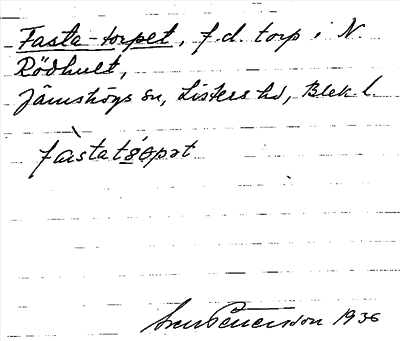 Fasta-torpet, f.d. torp i N.
Rödhult,
Jämshögs sn, Listers hd, Blek. l.
Sven Petersson 1936